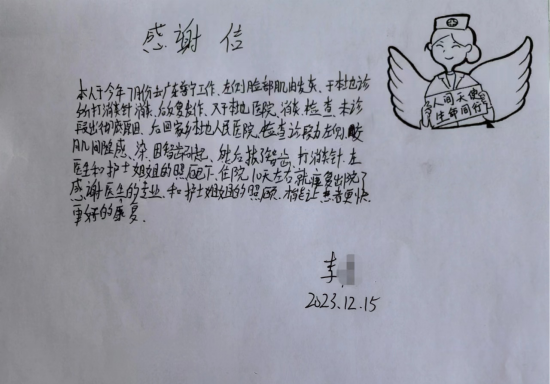 感谢信
人间天使
生命同行
本人于今年7月份去广东省工作、左侧脸部肌肉发炎、于本地诊
所打消炎针消炎、后反复发作、又于本地医院、消炎、检查、未诊
段出彻底原因、后回家乡本地人民医院、检查诊段为左侧咬
肌间隙感、染、因智齿引起、就去拔了智齿、打消炎针、在
医生和护士姐姐的照顾下、住院10天左右就康复出院了
感谢医生的专业、和护士姐姐的照顾、才能让患者更快
更好的康复。
李
2023.12.15